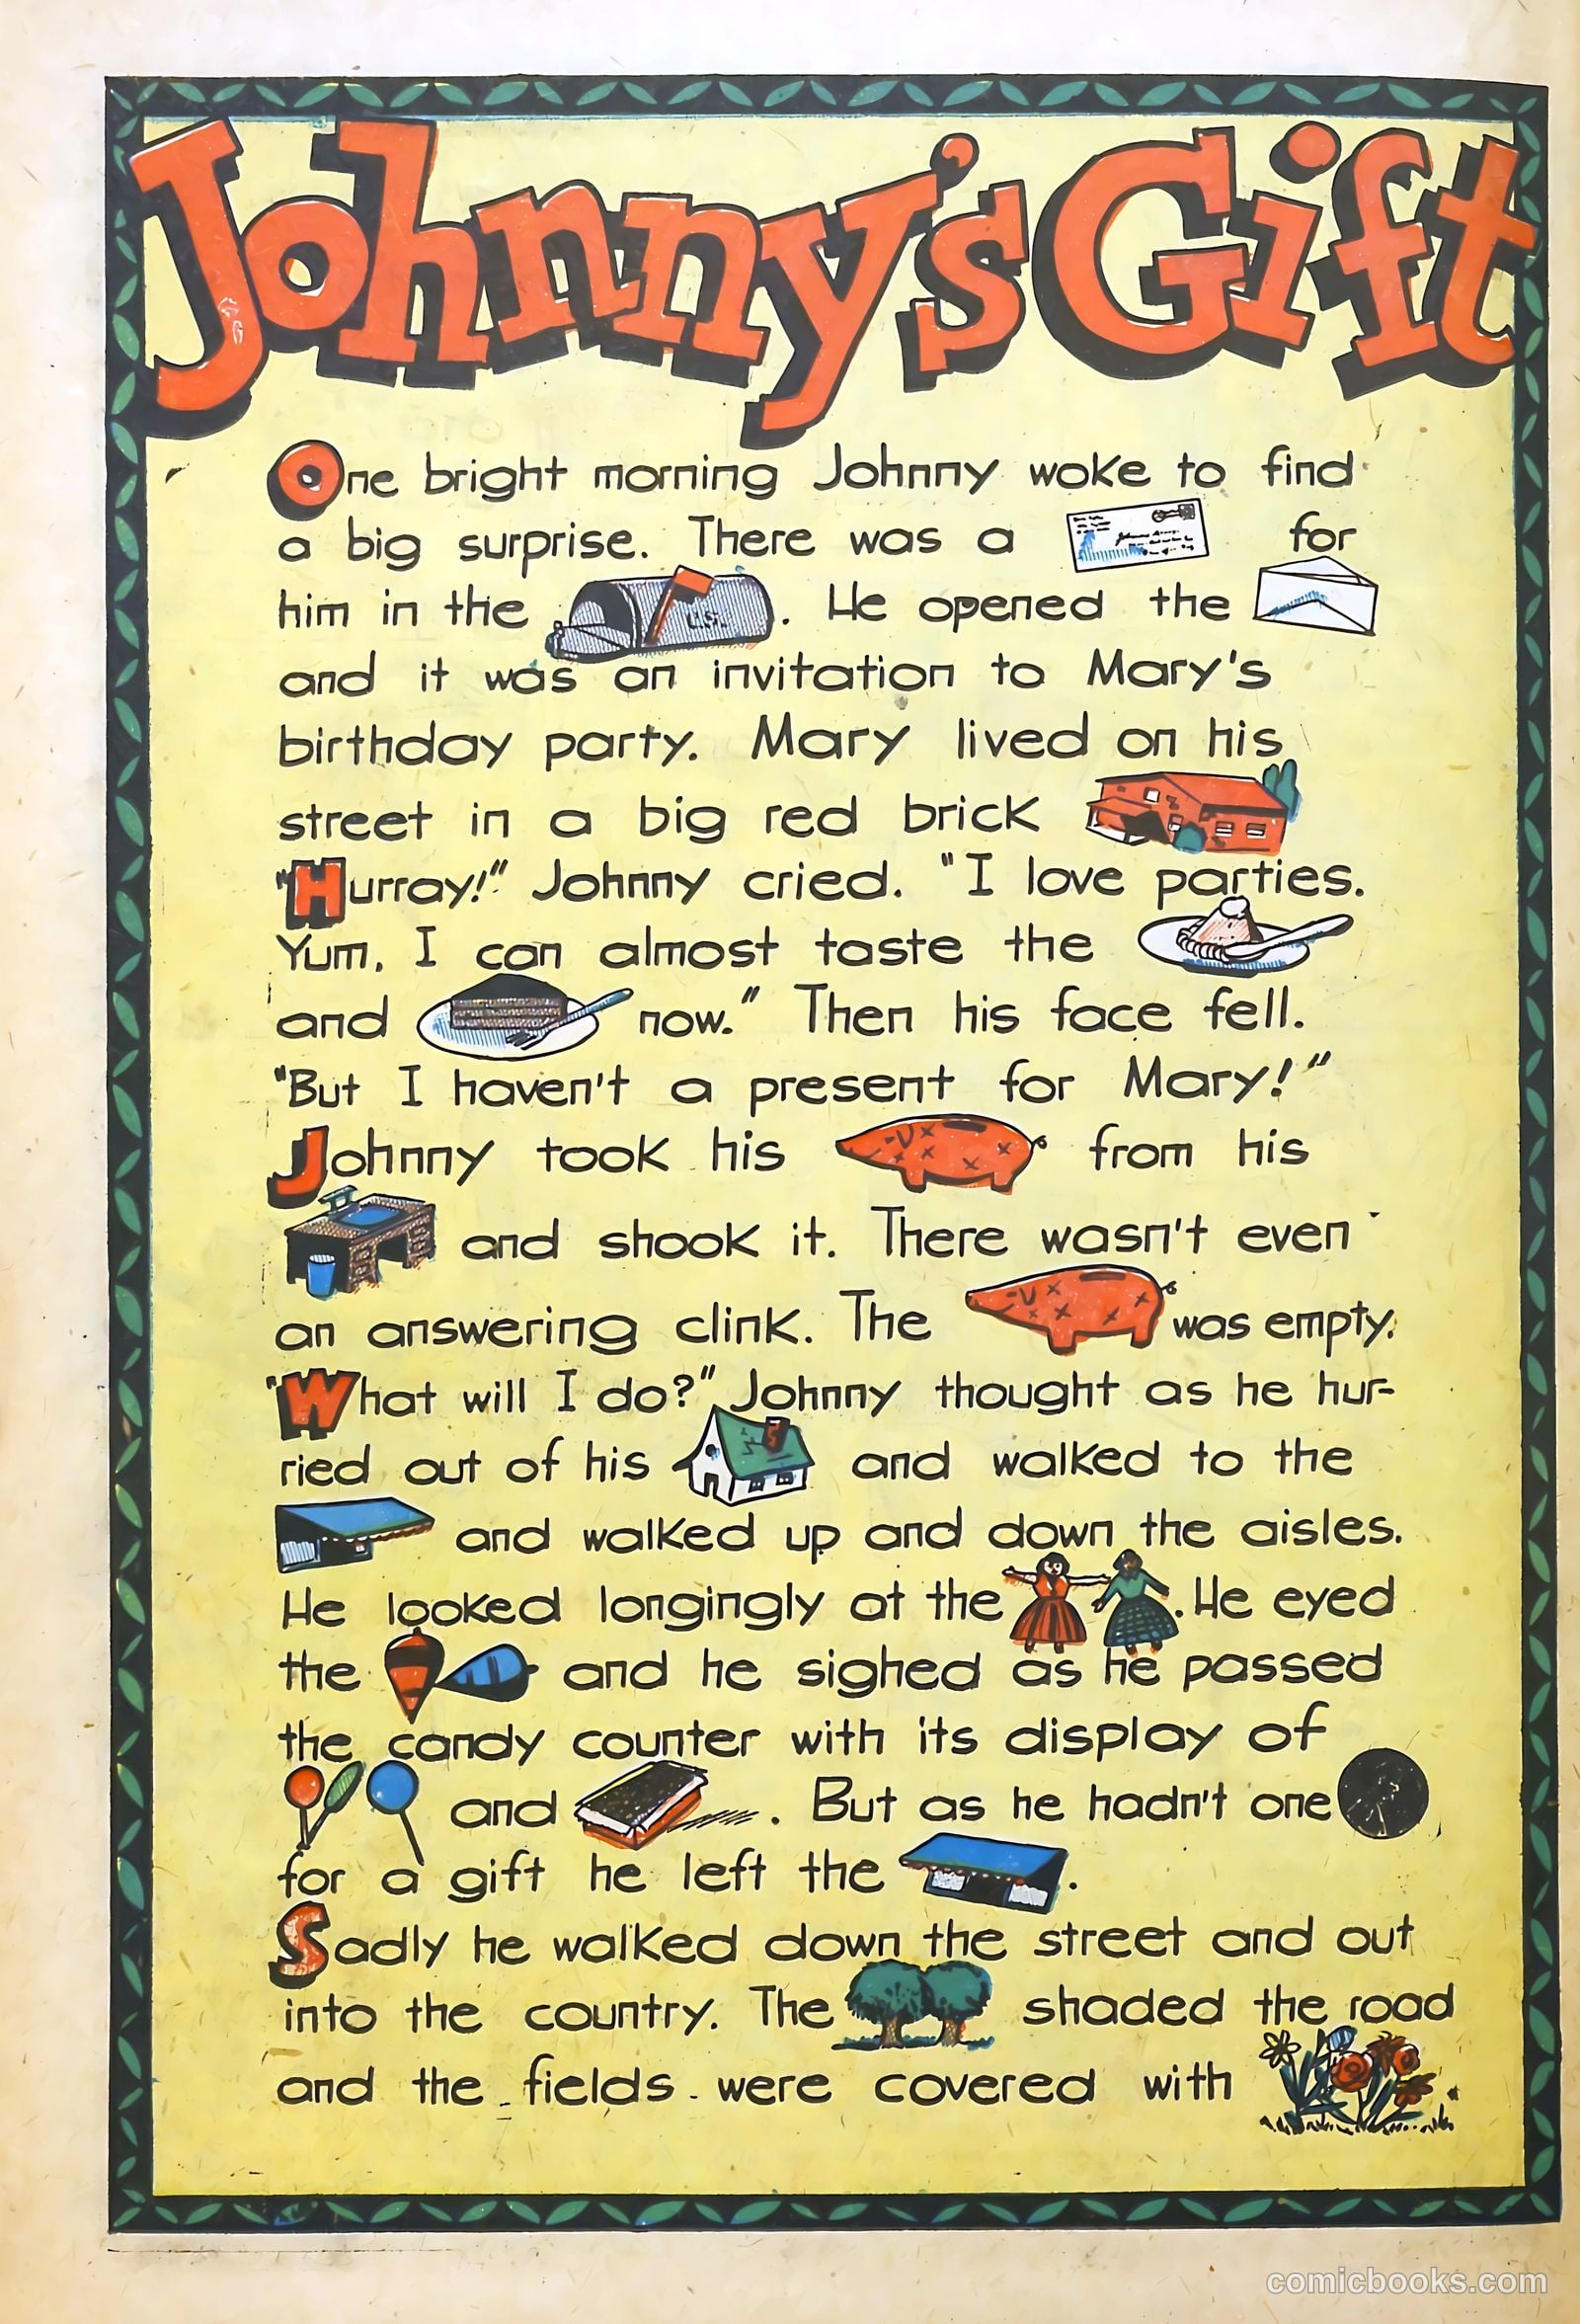 Johnny's Gift
One bright morning Johnny woke to find
a big surprise. There was a for
him in the U.S. . He opened the
and it was an invitation to Mary's
birthday party. Mary lived on his
street in a big red brick
"Hurray!" Johnny cried. "I love parties.
Yum, I can almost taste the
and now." Then his face fell.
"But I haven't a present for Mary!"
Johnny took his from his
and shook it. There wasn't even
an answering clink. The was empty.
"What will I do?" Johnny thought as he hur-
ried out of his and walked to the
and walked up and down the aisles.
He looked longingly at the . He eyed
the and he sighed as he passed
the candy counter with its display of
and . But as he hadn't one
for a gift he left the .
Sadly he walked down the street and out
into the country. The shaded the road
and the fields were covered with .
comicbooks.com